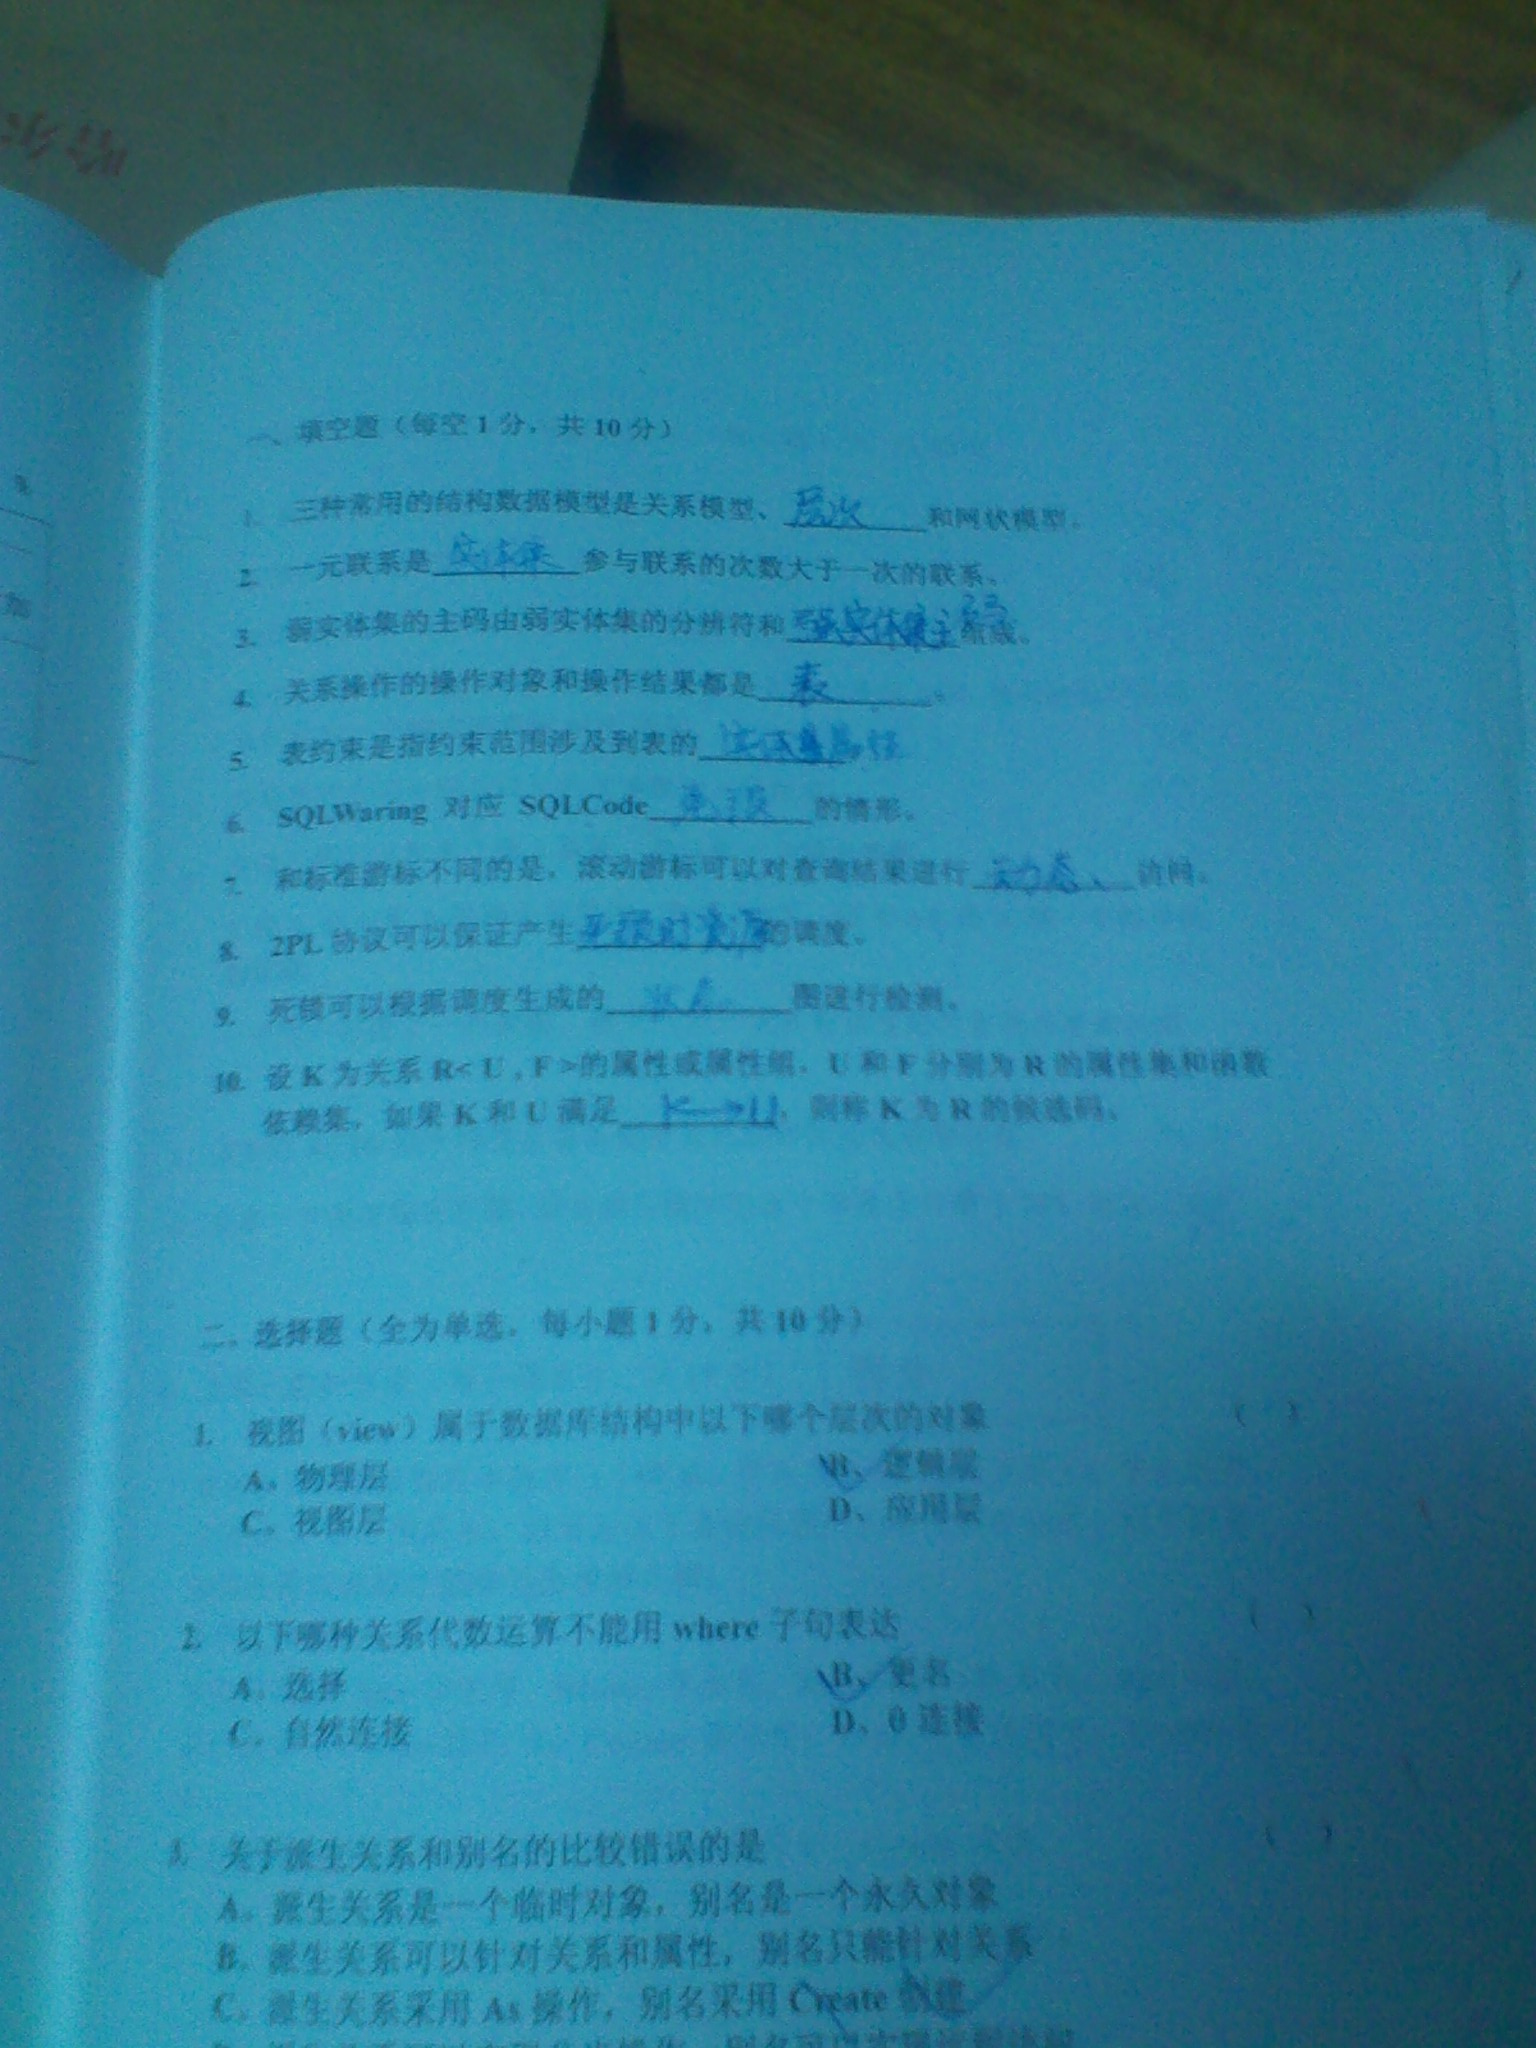 哈尔
一、填空题（每空 1 分，共 10 分）
1. 三种常用的结构数据模型是关系模型、层次和网状模型。
2. 一元联系是实体集参与联系的次数大于一次的联系。
3. 弱实体集的主码由弱实体集的分辨符和强实体集主码组成。
4. 关系操作的操作对象和操作结果都是表。
5. 表约束是指约束范围涉及到表的
6. SQLWaring 对应 SQLCode 的情形。
7. 和标准游标不同的是，滚动游标可以对查询结果进行动态、访问。
8. 2PL 协议可以保证产生的调度。
9. 死锁可以根据调度生成的状态图进行检测。
10. 设 K 为关系 R< U , F >的属性或属性组，U 和 F 分别为 R 的属性集和函数
依赖集，如果 K 和 U 满足 K→U，则称 K 为 R 的候选码。
二、选择题（全为单选，每小题 1 分，共 10 分）
1. 视图（view）属于数据库结构中以下哪个层次的对象 （ ）
A、物理层 B、逻辑层
C、视图层 D、应用层
2. 以下哪种关系代数运算不能用 where 子句表达 （ ）
A、选择 B、更名
C、自然连接 D、θ 连接
3. 关于派生关系和别名的比较错误的是 （ ）
A、派生关系是一个临时对象，别名是一个永久对象
B、派生关系可以针对关系和属性，别名只能针对关系
C、派生关系采用 As 操作，别名采用 Create 创建